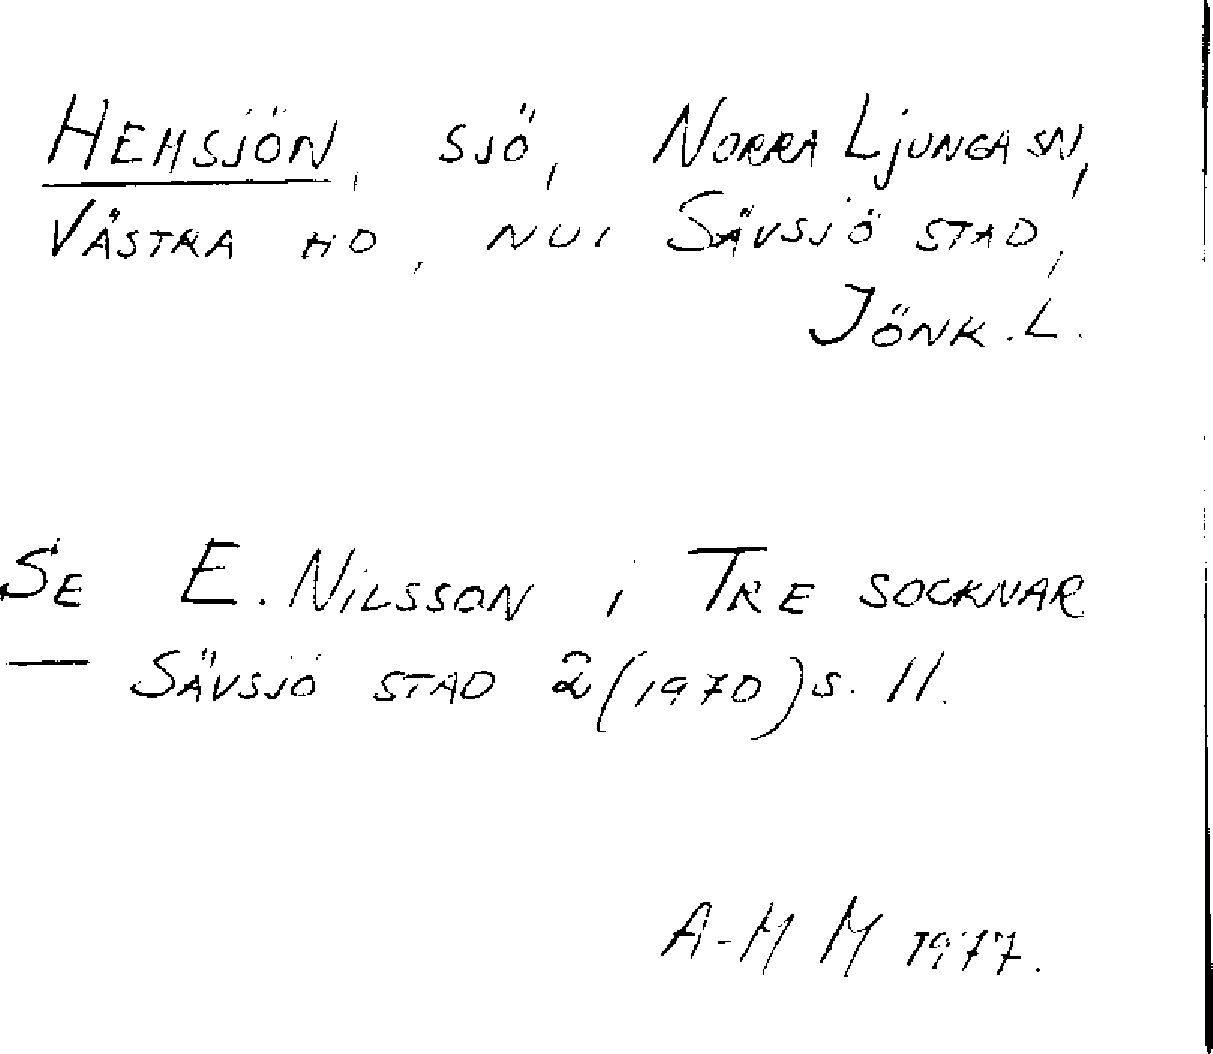 HEMSJÖN, SJÖ, NORRA LJUNGA SN,
VÄSTRA HD, NUI SÄVSJÖ STAD,
JÖNK. L.
SE E. NILSSON i TRE SOCKNAR
— SÄVSJÖ STAD 2 (1970) s. 11.
A-M M 1977.